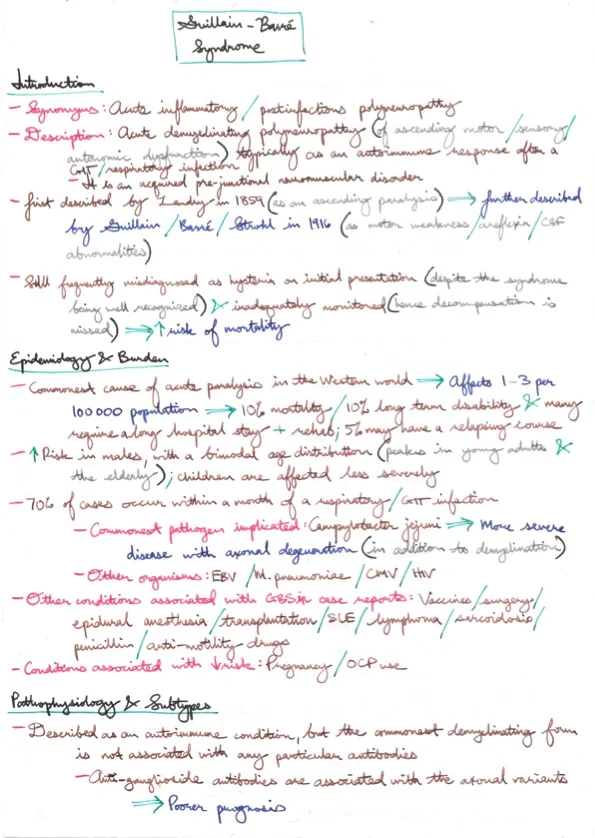 Guillain-Barré
Syndrome
Introduction
- Synonyms: Acute inflammatory / postinfectious polyneuropathy
- Description: Acute demyelinating polyneuropathy (of ascending motor / sensory /
autonomic dysfunction) typically as an autoimmune response after a
GIT / respiratory infection
- It is an acquired pre-junctional neuromuscular disorder
- First described by Landry in 1859 (as an ascending paralysis) ⟹ further described
by Guillain / Barré / Strohl in 1916 (as motor weakness / areflexia / CSF
abnormalities)
- Still frequently misdiagnosed as hysteria on initial presentation (despite the syndrome
being well recognized) & inadequately monitored (hence decompensation is
missed) ⟹ ↑ risk of mortality
Epidemiology & Burden
- Commonest cause of acute paralysis in the Western world ⟹ Affects 1-3 per
100 000 population ⟹ 10% mortality / 10% long term disability & many
require a long hospital stay + rehab; 5% may have a relapsing course
- ↑ Risk in males, with a bimodal age distribution (peaks in young adults &
the elderly); children are affected less severely
- 70% of cases occur within a month of a respiratory / GIT infection
- Commonest pathogen implicated: Campylobacter jejuni ⟹ More severe
disease with axonal degeneration (in addition to demyelination)
- Other organisms: EBV / M. pneumoniae / CMV / HIV
- Other conditions associated with GBS in case reports: Vaccines / surgery /
epidural anesthesia / transplantation / SLE / lymphoma / sarcoidosis /
penicillin / anti-motility drugs
- Conditions associated with ↓ risk: Pregnancy / OCP use
Pathophysiology & Subtypes
- Described as an autoimmune condition, but the commonest demyelinating form
is not associated with any particular antibodies
- Anti-ganglioside antibodies are associated with the axonal variants
⟹ Poorer prognosis